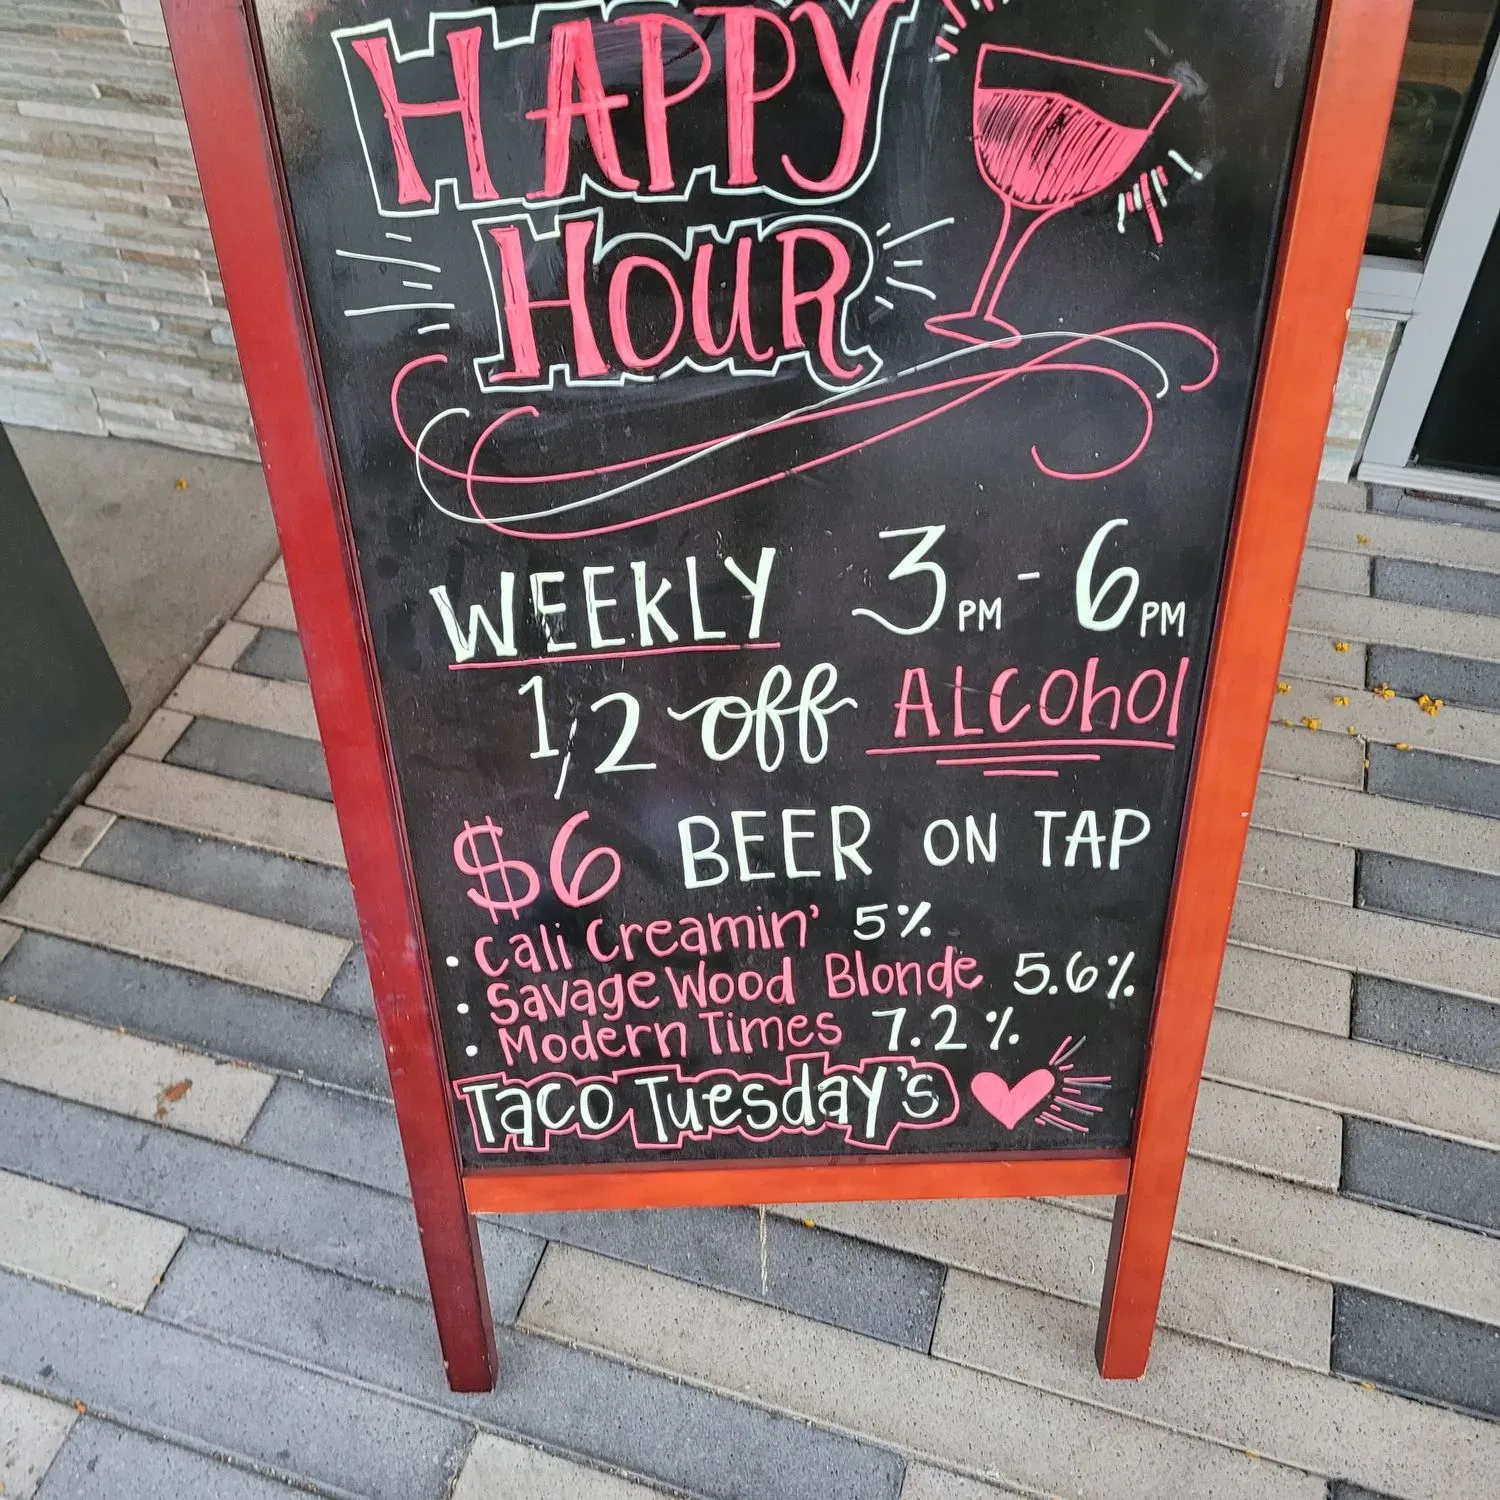 HAPPY
HOUR
WEEKLY 3PM - 6PM
1/2 off ALCohol
$6 BEER ON TAP
• Cali Creamin' 5%
• Savage Wood Blonde 5.6%
• Modern Times 7.2%
Taco Tuesday's